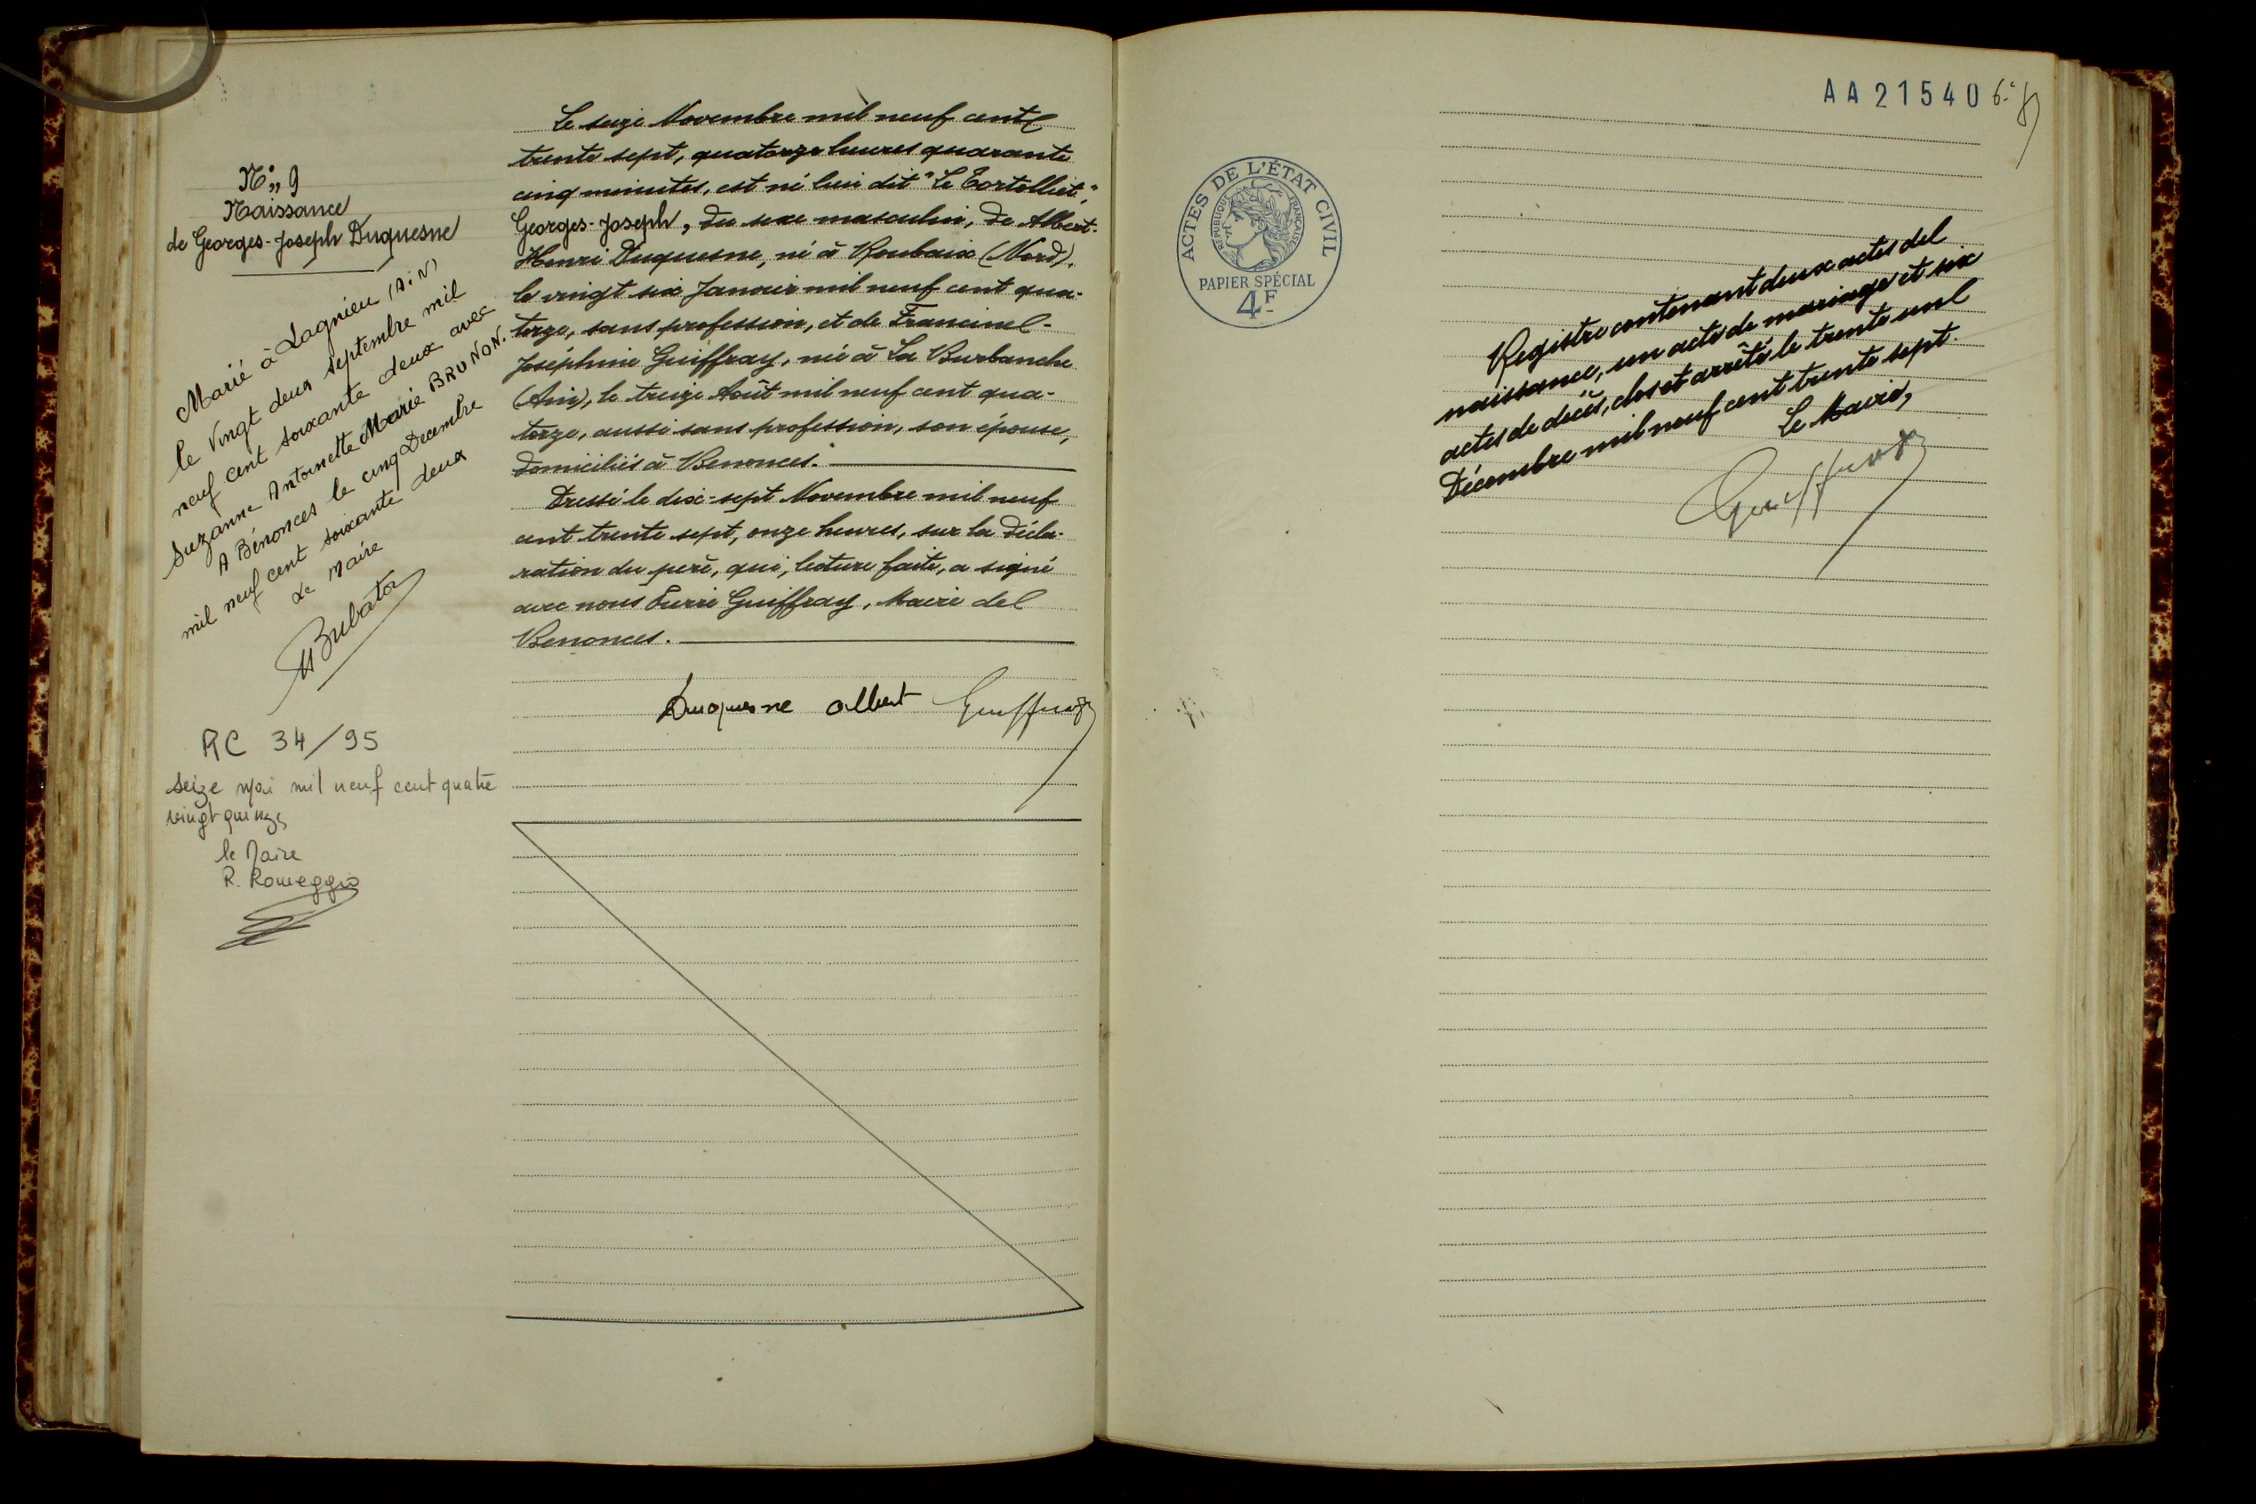 N° 9
Naissance
de Georges-Joseph Duquesne
Marié à Lagnieu (AiN)
le vingt deux septembre mil
neuf cent soixante deux avec
Suzanne Antoinette Marie BRUNON.
A Bénonces le cinq Decembre
mil neuf cent soixante deux
Le Maire
RC 34/95
seize mai mil neuf cent quatre
vingt quinze
le Maire
R. Romeggio
Le seize Novembre mil neuf cent
trente sept, quatorze heures quarante
cinq minutes, est né lieu dit "Le Tortolliet",
Georges-Joseph, du sexe masculin, de Albert-
Henri Duquesne, né à Roubaix (Nord),
le vingt six Janvier mil neuf cent qua-
torze, sans profession, et de Francine-
Joséphine Guiffray, née à La Burbanche
(Ain), le treize Août mil neuf cent qua-
torze, aussi sans profession, son épouse,
domiciliés à Benonces.
Dressé le dix-sept Novembre mil neuf
cent trente sept, onze heures, sur la décla-
ration du père, qui, lecture faite, a signé
avec nous Guiffray, Maire de
Benonces.
Duquesne Albert Guiffray
AA21540 6.e
ACTES DE L'ÉTAT CIVIL
RÉPUBLIQUE FRANÇAISE
PAPIER SPÉCIAL
4F
Registre contenant deux actes de
naissance, un acte de mariage et six
actes de décès, clos et arrêté le trente un
Décembre mil neuf cent trente sept.
Le Maire,
Guiffray